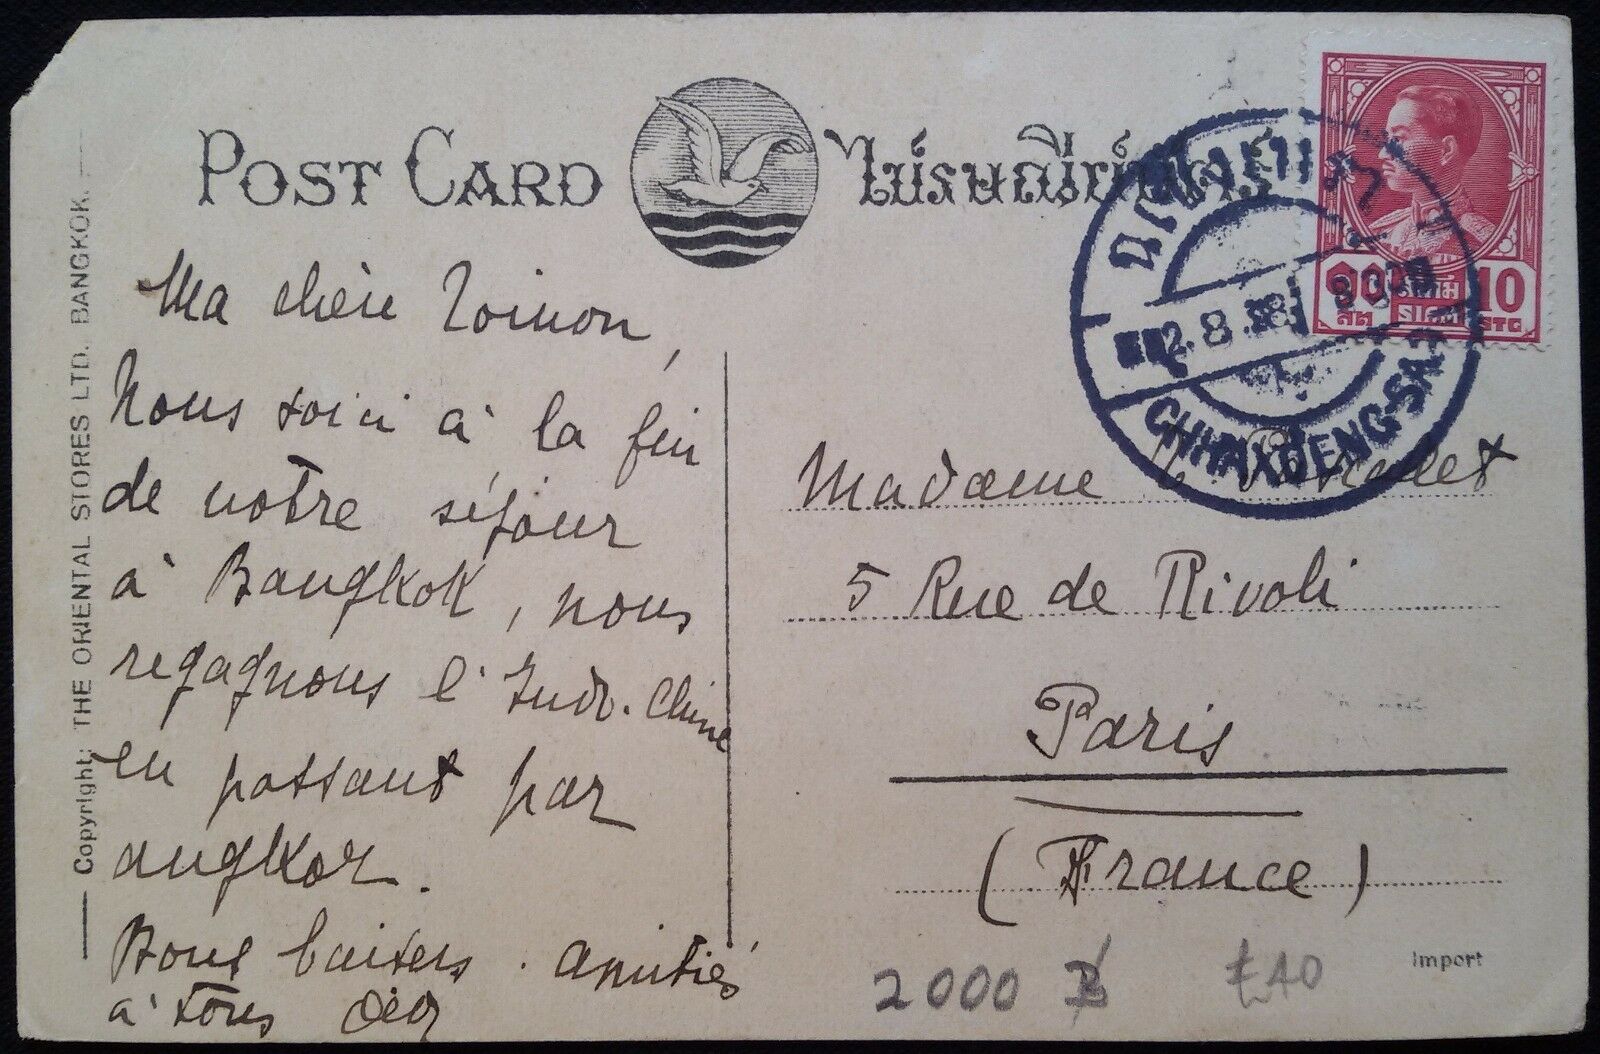 POST CARD
ไปรษณียบัตร
Copyright: THE ORIENTAL STORES LTD. BANGKOK.
Ma chère
Nous voici à la fin
de notre séjour
à Bangkok, nous
regagnons l'Indo-Chine
en passant par
angkor.
Bons baisers. amitiés
à tous
10
๑๐
สต
สยาม
SIAM
STG.
2.8.38
Madame
5 Rue de Rivoli
Paris
(France)
Import
2000 ฿ £40